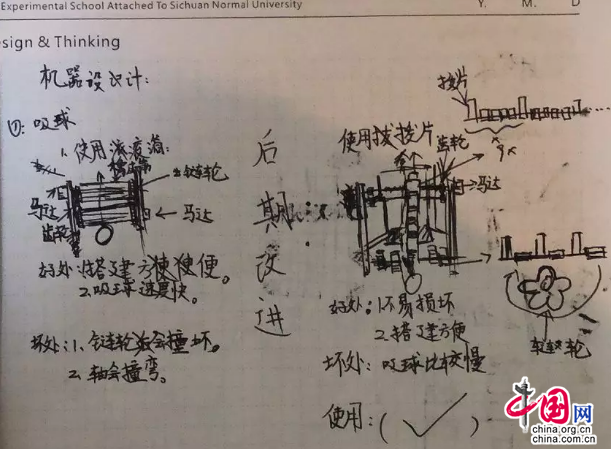 Experimental School Attached To Sichuan Normal University
Y. M. D
sign & Thinking
机器设计:
四: 吸球
1. 使用
链轮
马达
马达
齿轮
好处: 1.搭建方便。
2.吸球速度快。
坏处: 1. 链轮会撞坏。
2. 轴会撞弯。
后期改进:
使用拨片
拨片
齿轮
马达
好处: 1.不易损坏
2.搭建方便
坏处: 吸球比较慢
使用: ( ✓ )
链轮
中国网
china.org.cn
china.com.cn